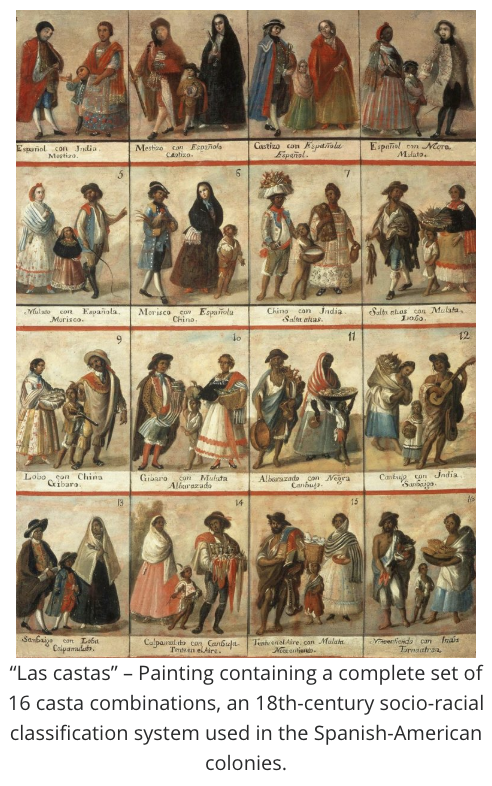 Español con India
Mestizo.
Mestizo con Española
Castizo.
Castizo con Española
Español.
Español con Mora
Mulato.
5
Mulato con Española
Morisco.
6
Morisco con Española
Chino.
7
Chino con India
Salta atras.
Salta atras con Mulata.
Lobo.
9
Lobo con China
Gibaro.
10
Gibaro con Mulata
Albarazado
11
Albarazado con Negra
Canbujo.
12
Canbujo con India.
Sanbaigo.
13
Sanbaigo con Loba
Calpamulato.
14
Calpamulato con Canbuja.
Tente en el Aire.
15
Tente en el Aire con Mulata.
No te entiendo.
16
No te entiendo con India
Torna atras.
“Las castas” – Painting containing a complete set of
16 casta combinations, an 18th-century socio-racial
classification system used in the Spanish-American
colonies.